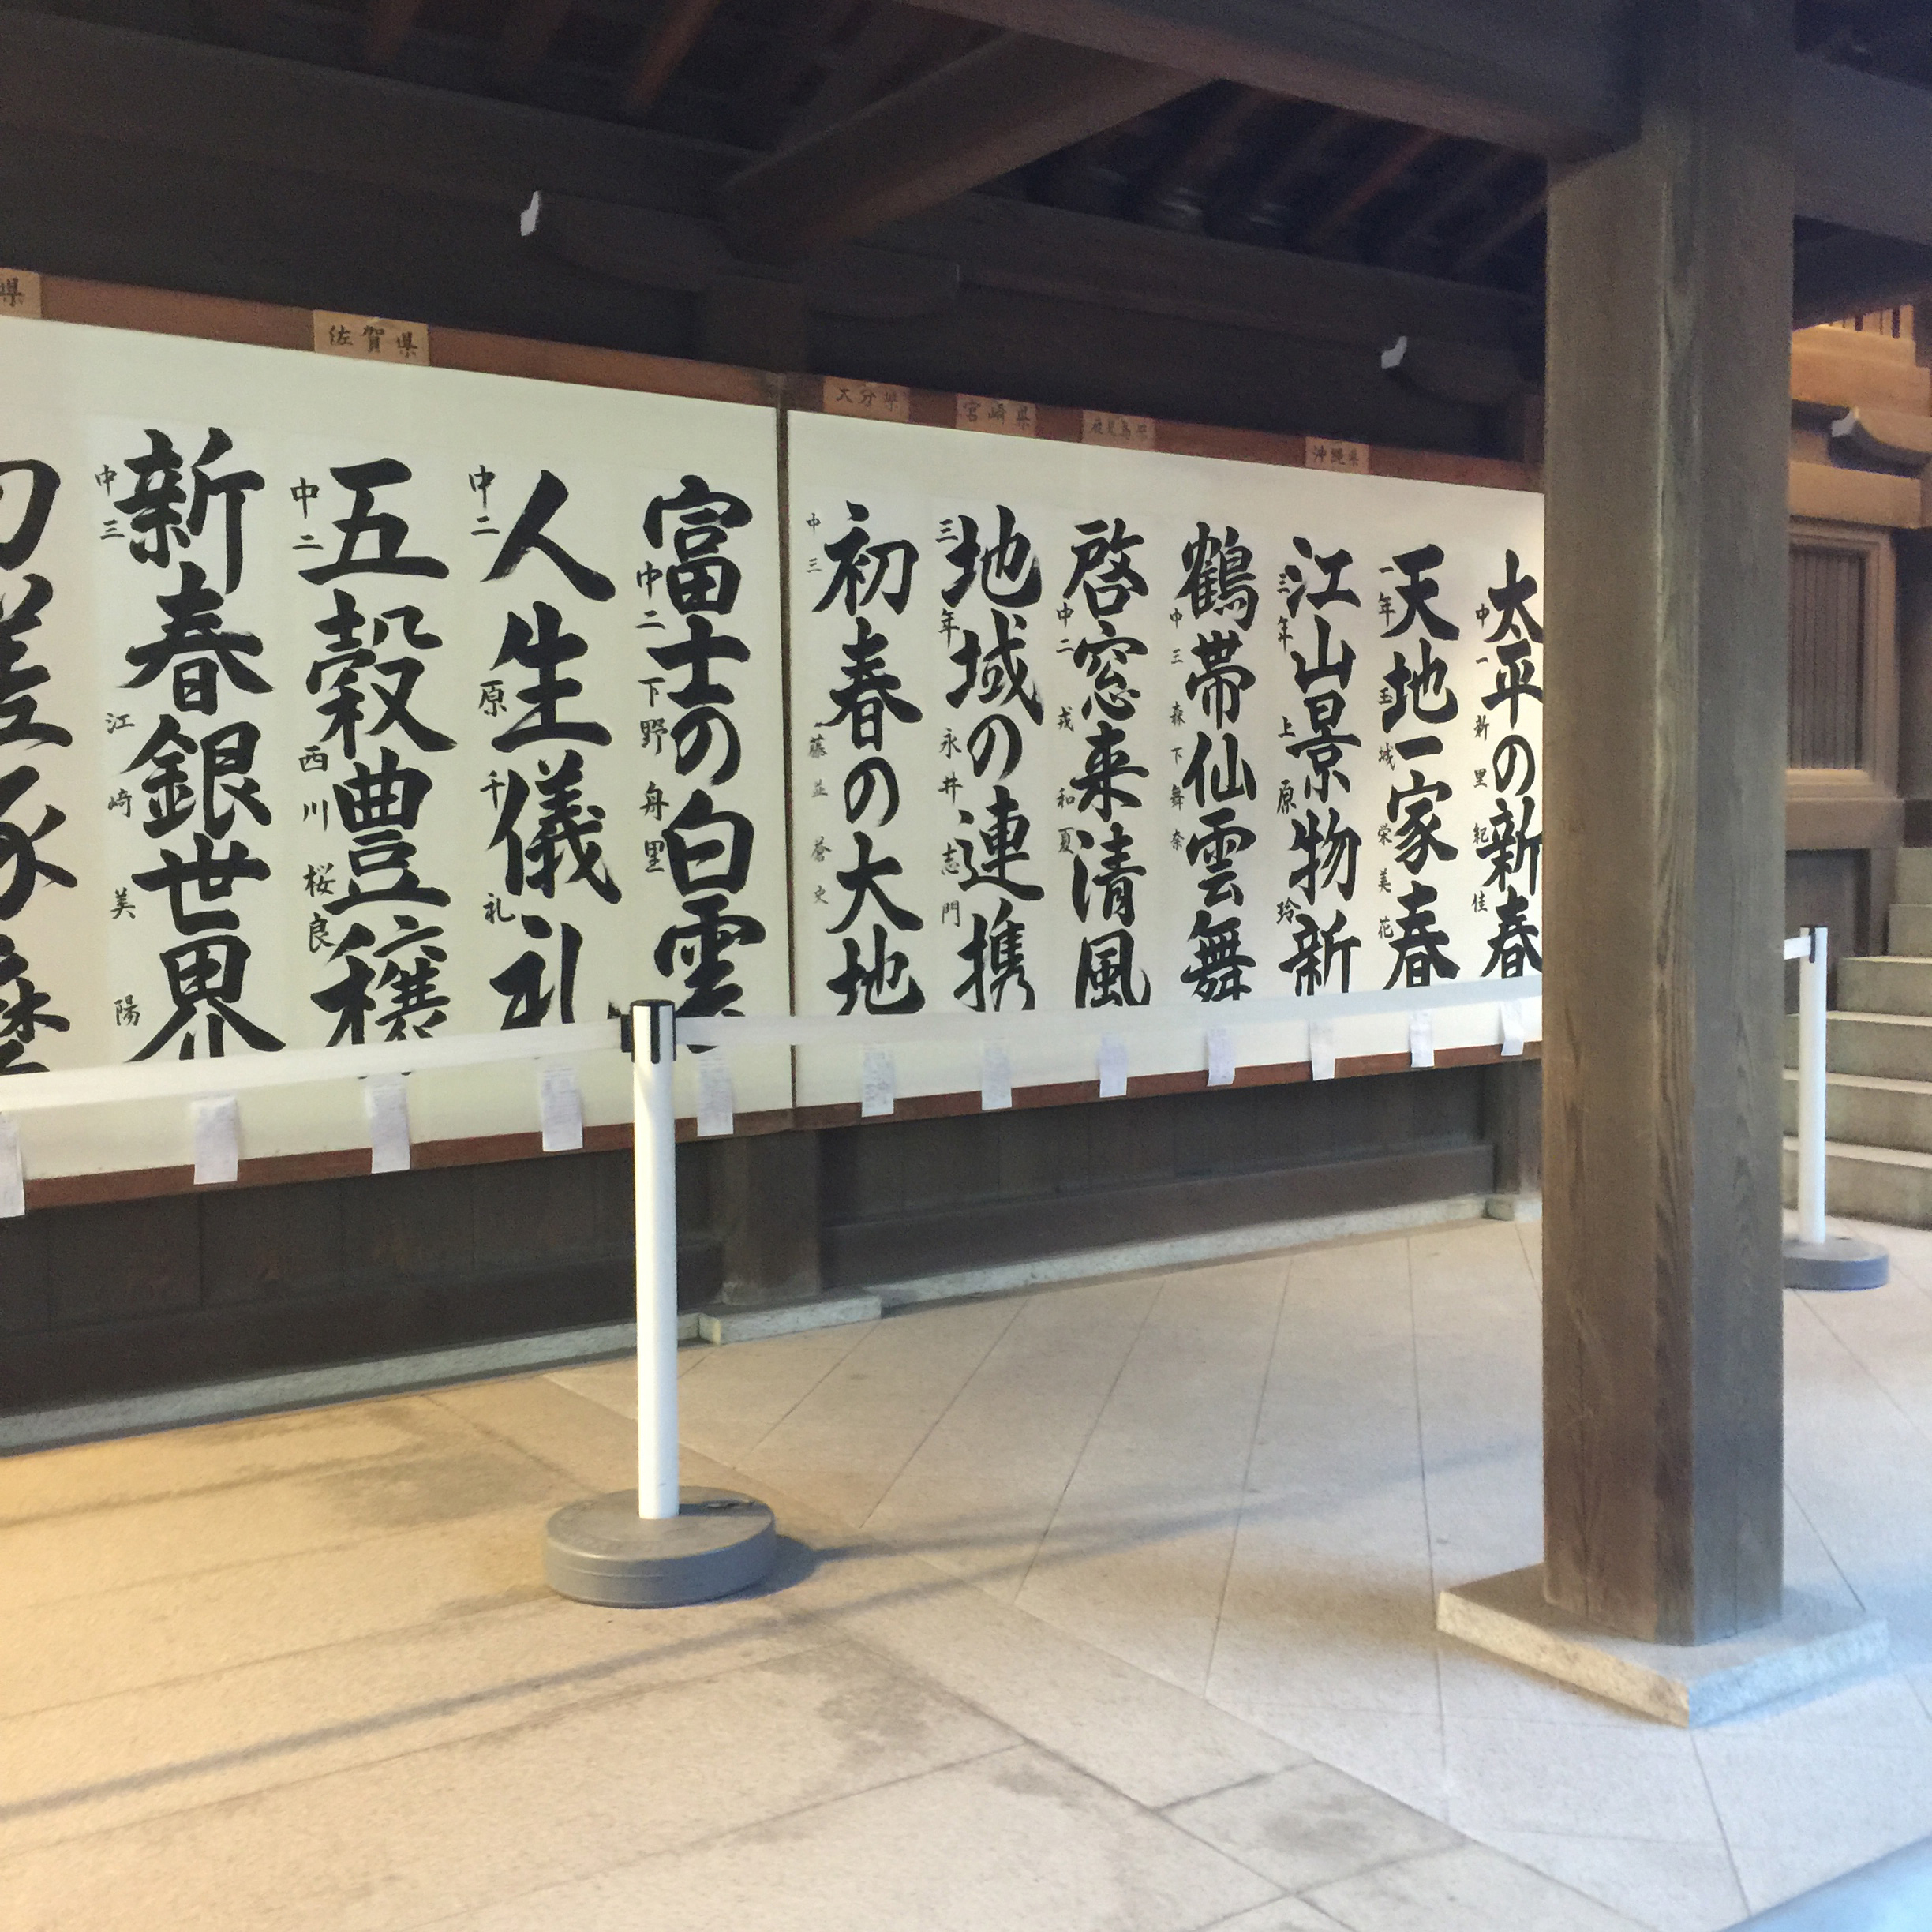 県
佐賀県
大分県
宮崎県
鹿児島県
沖縄県
太平の新春
中一 新里紀佳
天地一家春
一年 玉城栄美花
江山景物新
三年 上原玲
鶴帯仙雲舞
中三 森下舞奈
啓窓来清風
中二 戎和夏
地域の連携
三年 永井志門
初春の大地
中三 藤並蒼史
富士の白雲
中二 下野舟里
人生儀礼
中二 原千礼
五穀豊穣
中二 西川桜良
新春銀世界
中三 江崎美陽
切磋琢磨